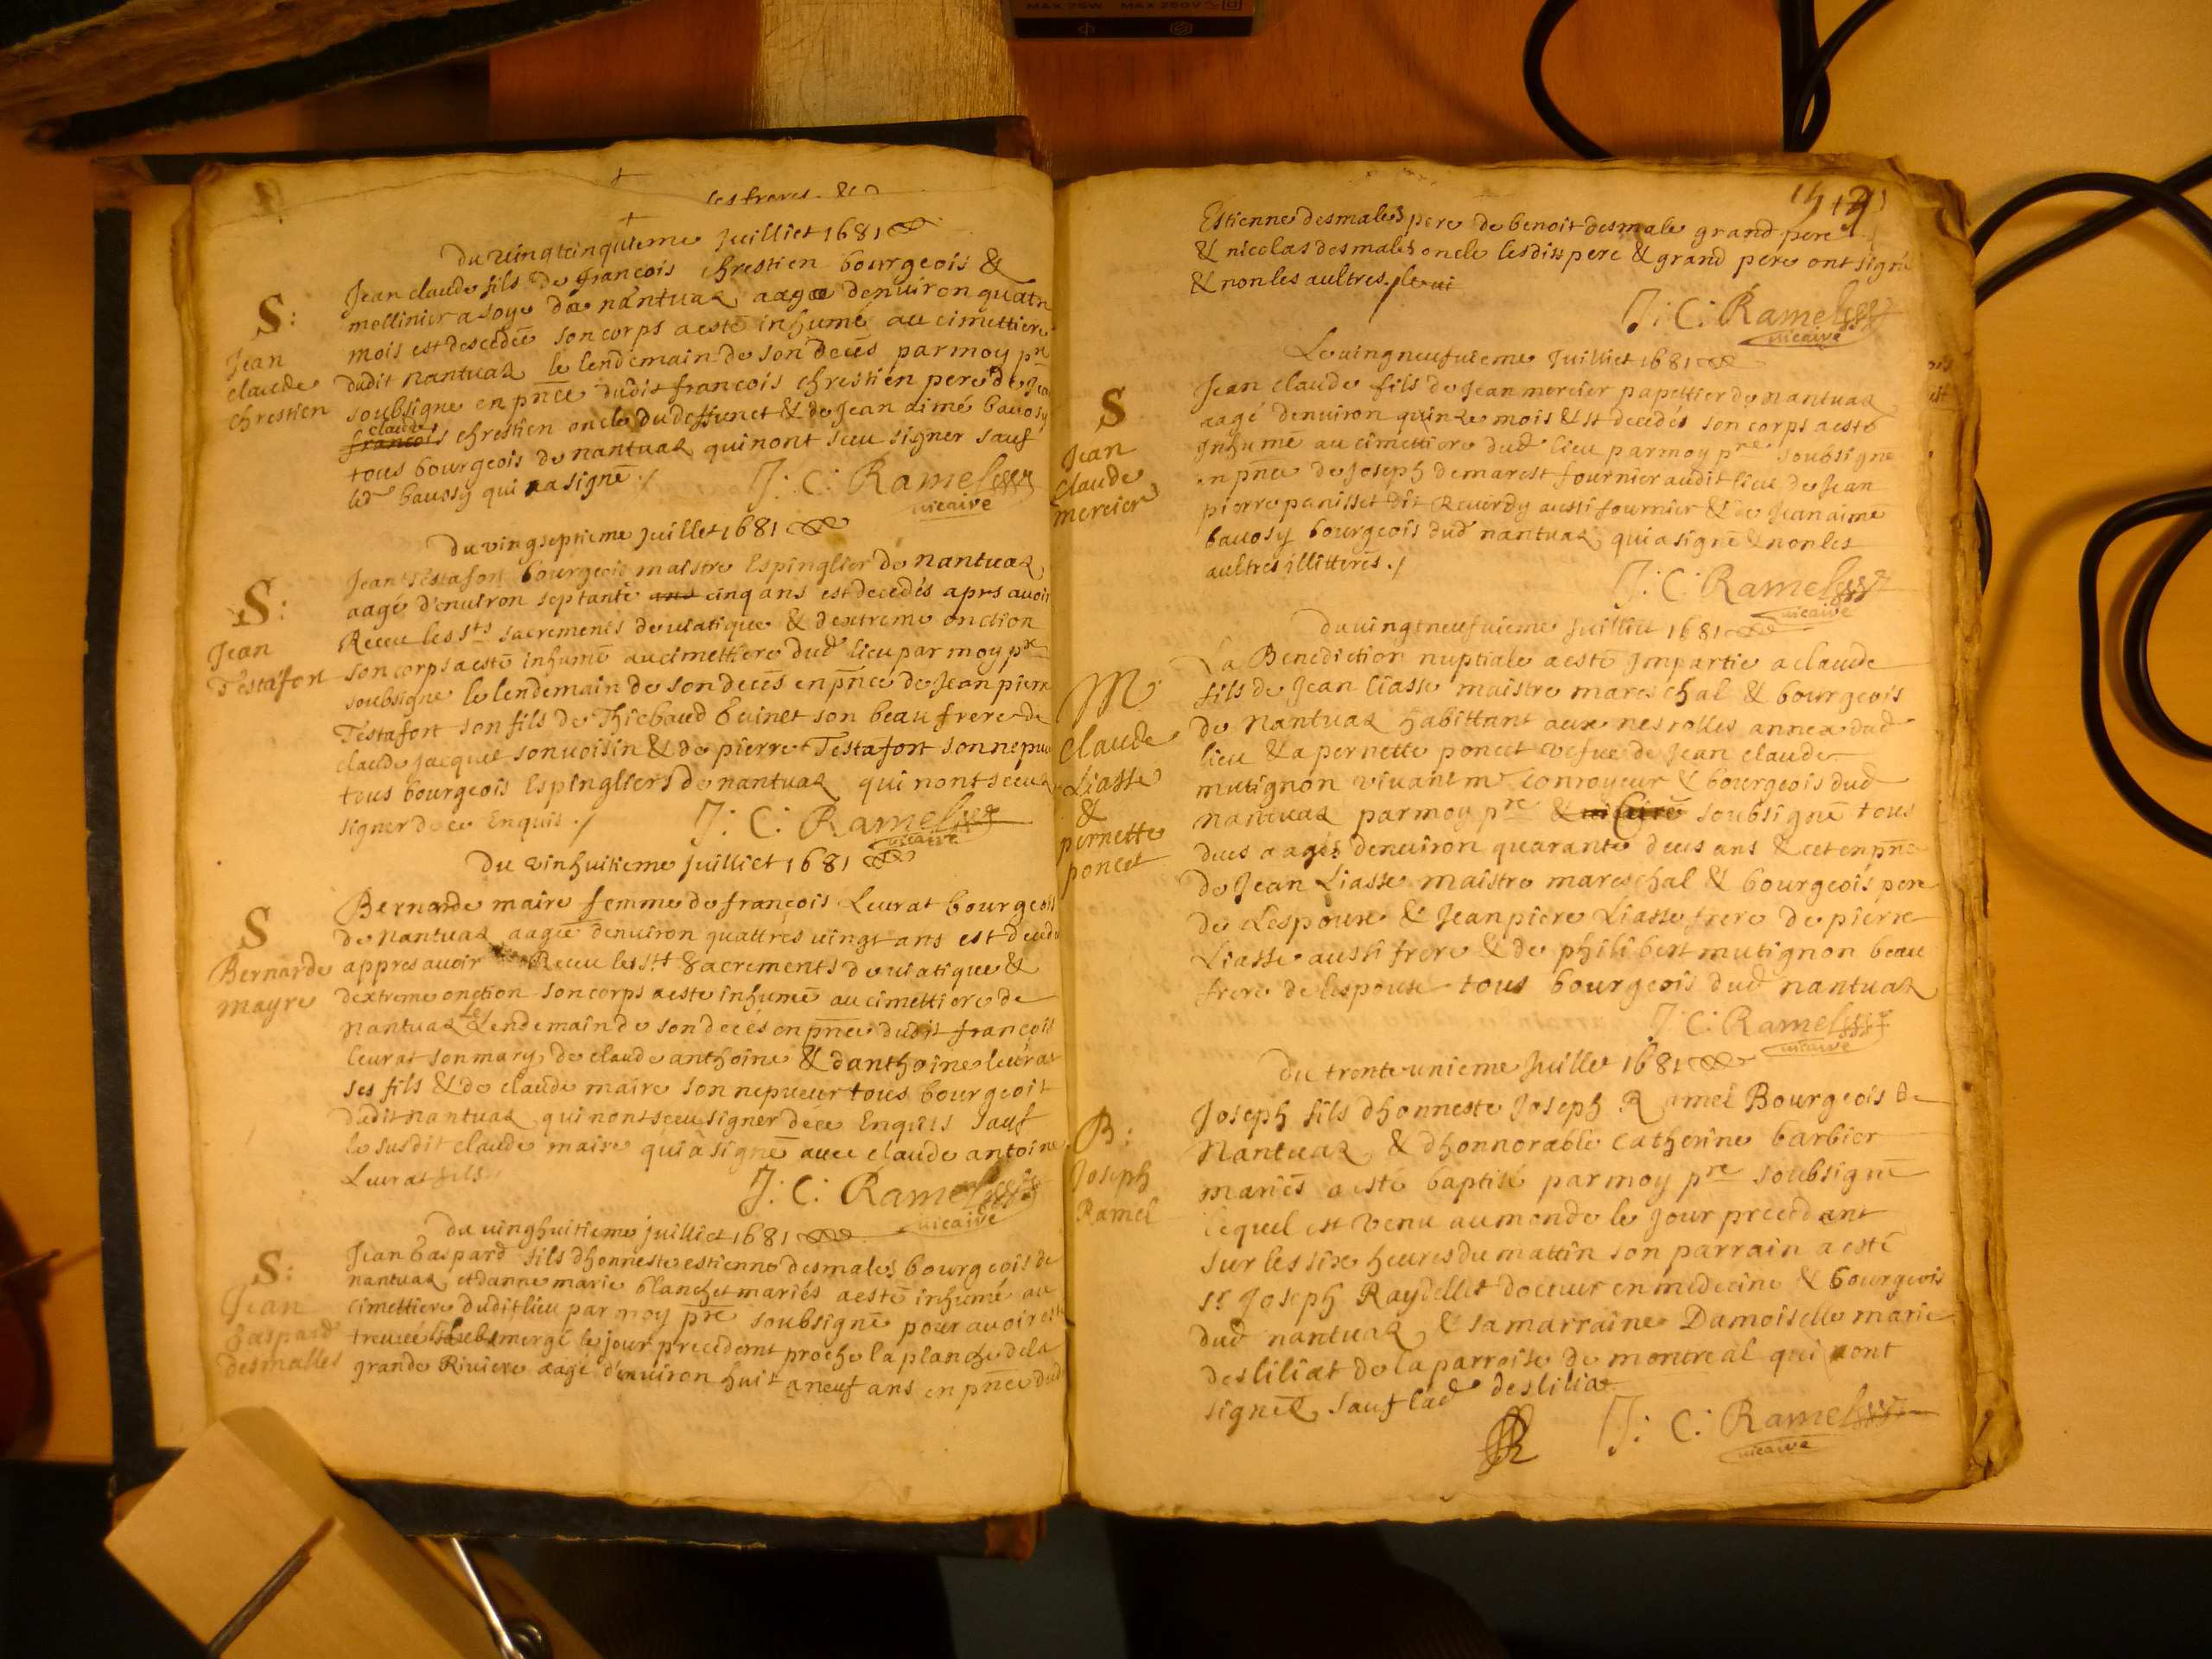 MAX 75W MAX 250V
les freres. &c
Du vingtcinquieme Juilliet 1681
S:
Jean
claude
chrestien
Jean claude fils de francois chrestien bourgeois &
mollinier a soye de nantuas aagé denuiron quatre
mois est descedéé son corps a esté inhumé au cimettiere
dudit nantuas le lendemain de son deces par moy pre
soubsigne en pnce dudit francois chrestien pere de Jean
claude
francois chrestien oncle du deffunct & de Jean aimé bauosy
tous bourgeois de nantuas qui nont sceu signer sauf
led bauosy qui a signé ./ J: C: Ramel
vicaire
Du vingseptieme Juillet 1681
S:
Jean
Testafort
Jean Testafort bourgeois maistre Espinglier de nantuas
aagé d'enuiron septante ans cinq ans est decedés aprs auoir
Receu les sts sacrements de uiatique & dextreme onction
son corps a esté inhumé au cimettiere dud lieu par moy pre
soubsigne le lendemain de son deces en pnce de Jean pierre
Testafort son fils de Thiebaud Guinet son beau frere de
claude Jacquet son uoisin & de pierre Testafort son nepueu
tous bourgeois Espingliers de nantuas qui nont sceu
signer de ce Enquis ./ J: C: Ramel
vicaire
Du vinhuitieme Juilliet 1681
S
Bernarde
mayre
Bernarde maire femme de francois Leurat bourgeois
de nantuas aagéé denuiron quattres uingt ans est decedé
appres auoir Receu les sts Sacrements de uiatique &
dextreme onction son corps a esté inhumé au cimettiere de
nantuas Le Lendemain de son deces en pnce dudit francois
Leurat son mary, de claude anthoine & danthoine leurat
ses fils & de claude maire son nepueur tous bourgeois
dudit nantuas qui nont sceu signer dece Enquis sauf
le susdit claude maire qui a signé auec claude antoine
Leurat fils J: C: Ramel
vicaire
Du uinghuitieme Juilliet 1681
S:
Jean
Gaspard
desmalles
Jean Gaspard fils dhonneste estienne desmales bourgeois de
nantuas et danne marie blanchet mariés a esté inhumé au
cimettiere dudit lieu par moy pre soubsigné pour auoir esté
treuué submergé le jour precedent proche la planche de la
grande Riuiere aagé d'enuiron huit a neuf ans en pnce dud
Estienne desmales pere de benoit desmale grand pere
& nicolas desmales oncle lesdits pere & grand pere ont signé
& non les aultres. /
J: C: Ramel
vicaire
Le uingneufuieme Juilliet 1681
S
Jean
Claude
mercier
Jean claude fils de Jean mercier papettier de nantuas
aagé denuiron quinze mois & st decédés son corps a esté
Inhumé au cimettiere dud lieu par moy pre soubsigne
en pnce de Joseph demarest fournier audit lieu de Jean
pierre panisset dit Reuerdy aussi fournier & de Jean aimé
bauosy bourgeois dud nantuas qui a signé & non les
aultres illitteres ./
J: C: Ramel
vicaire
Du uingtneufuieme Juilliet 1681
M
Claude
Liasse
&
pernette
poncet
La Benediction nuptiale a esté Impartie a claude
fils de Jean liasse maistre mareschal & bourgeois
de nantuas habittant aux nesrolles annex dud
lieu & a pernette poncet vefue de Jean claude
mutignon viuant m conroyeur & bourgeois dud
nantuas par moy pre & vicaire soubsigné tous
deus aagés denuiron quarante deus ans & cet en pnce
de Jean Liasse maistre mareschal & bourgeois pere
de Lespoux & Jean piere Liasse frere de pierre
Liasse aussi frere & de philibert mutignon beau
frere de lespouse tous bourgeois dud nantuas
J: C: Ramel
vicaire
Du trente unieme Juillet 1681
B:
Joseph
Ramel
Joseph fils dhonneste Joseph Ramel Bourgeois de
Nantuas & dhonnorable catherine barbier
mariés a esté baptisé par moy pre soubsigné
lequel est venu au monde le jour precedant
sur les six heures du mattin son parrain a esté
sr Joseph Raydellet docteur en medecine & bourgeois
dud nantuas & sa marraine Damoiselle marie
desliliat de la parroisse de montreal qui ont
signés sauf lad desliliat
J: C: Ramel
vicaire